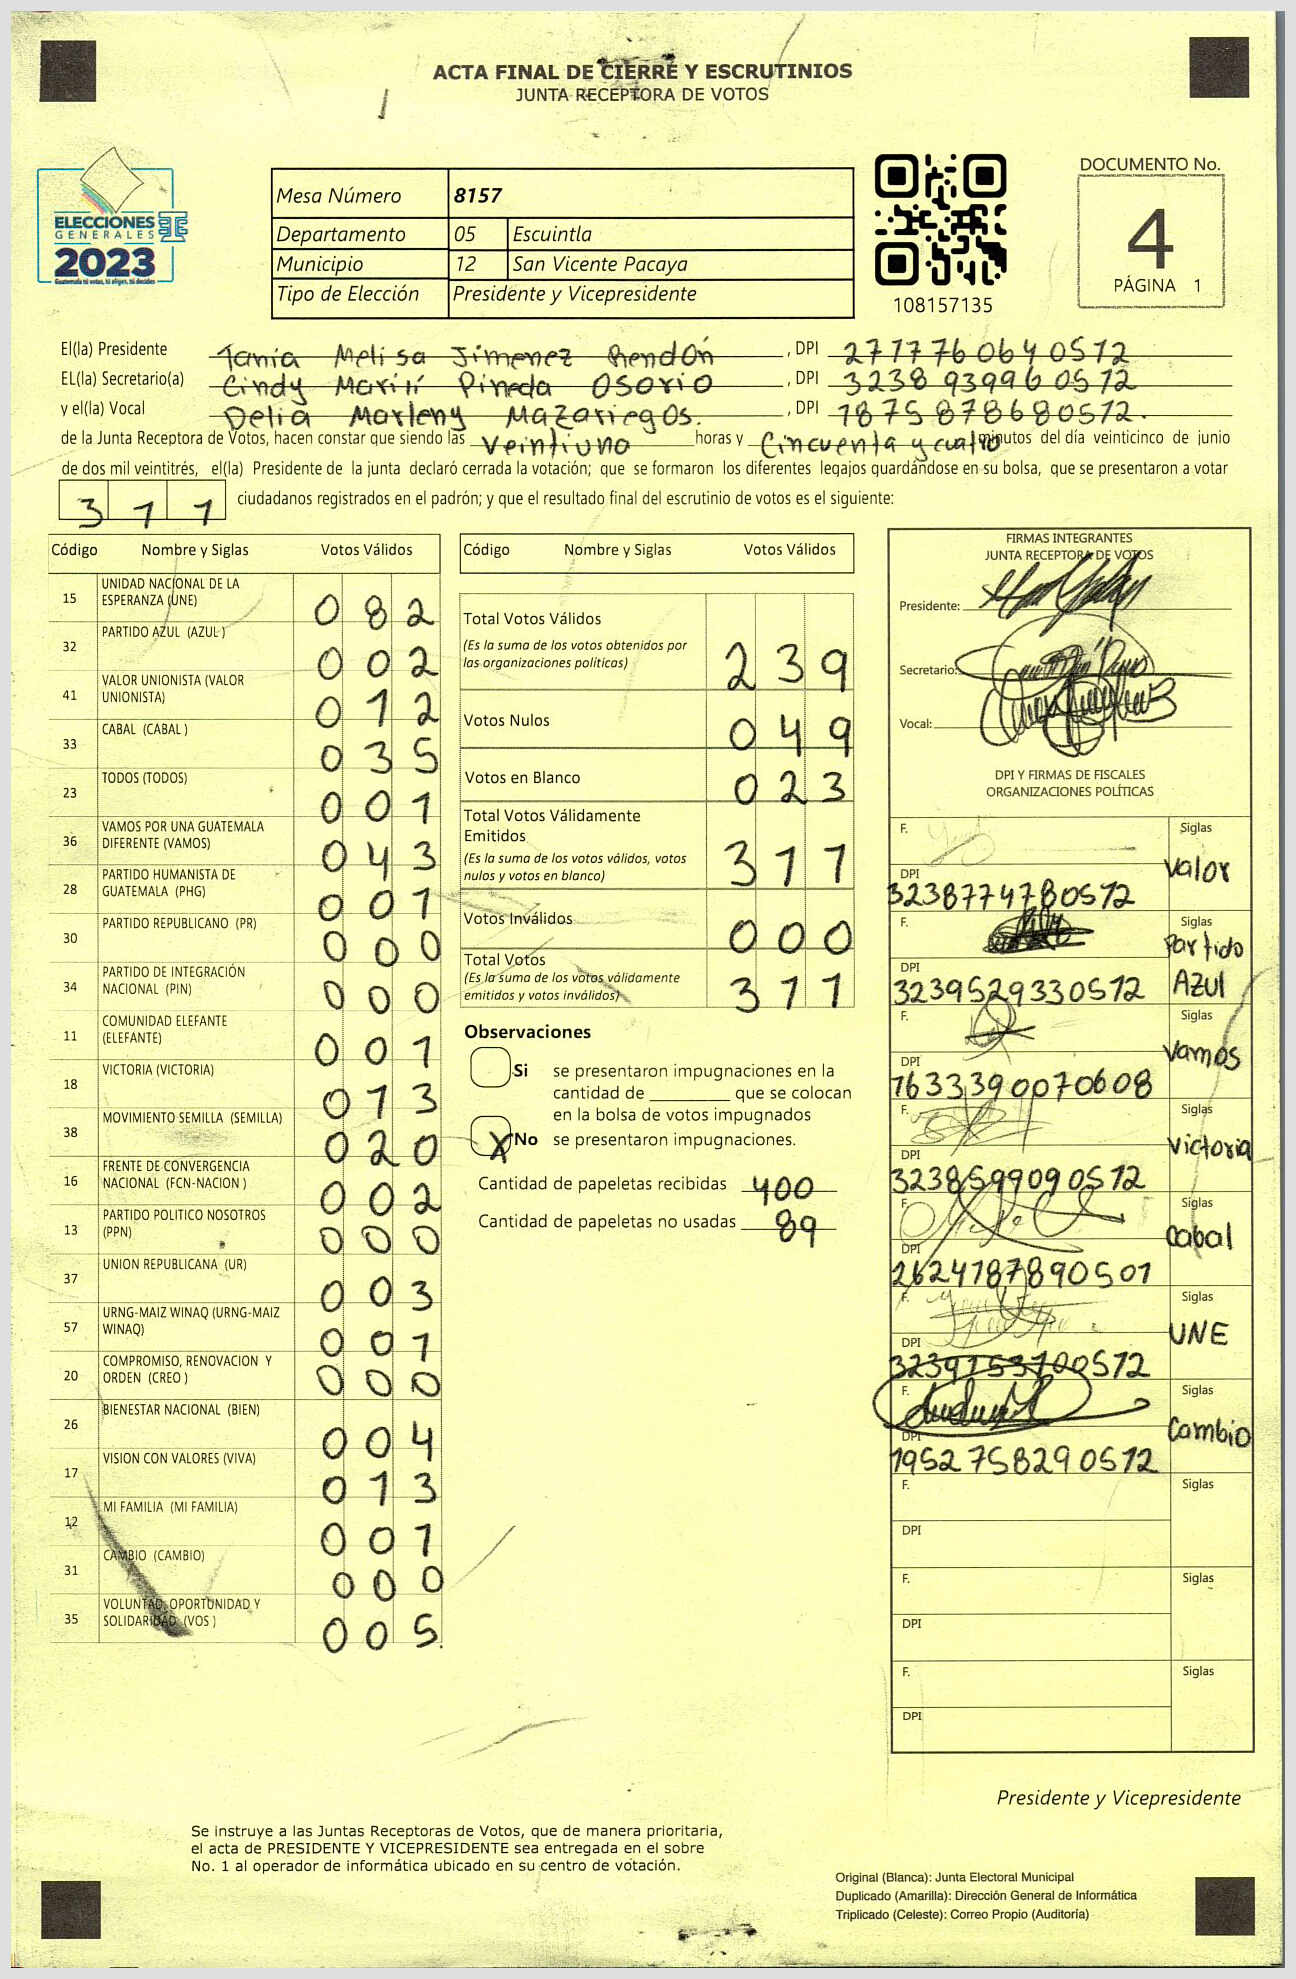 ACTA FINAL DE CIERRE Y ESCRUTINIOS
JUNTA RECEPTORA DE VOTOS
ELECCIONES
GENERALES
2023
Guatemala tú votas, tú eliges, tú decides
Mesa Número 8157
Departamento 05 Escuintla
Municipio 12 San Vicente Pacaya
Tipo de Elección Presidente y Vicepresidente
108157135
DOCUMENTO No.
4
PÁGINA 1
El(la) Presidente Tania Melisa Jimenez Rendón, DPI 2777760640512
EL(la) Secretario(a) Cindy Marilí Pineda Osorio, DPI 3238939960512
y el(la) Vocal Delia Marleny Mazariegos., DPI 1875878680512.
de la Junta Receptora de Votos, hacen constar que siendo las Veintiuno horas y Cincuenta y cuatro minutos del día veinticinco de junio
de dos mil veintitrés, el(la) Presidente de la junta declaró cerrada la votación; que se formaron los diferentes legajos guardándose en su bolsa, que se presentaron a votar
311 ciudadanos registrados en el padrón; y que el resultado final del escrutinio de votos es el siguiente:
Código Nombre y Siglas Votos Válidos
15 UNIDAD NACIONAL DE LA ESPERANZA (UNE) 082
32 PARTIDO AZUL (AZUL ) 002
41 VALOR UNIONISTA (VALOR UNIONISTA) 012
33 CABAL (CABAL ) 035
23 TODOS (TODOS) 001
36 VAMOS POR UNA GUATEMALA DIFERENTE (VAMOS) 043
28 PARTIDO HUMANISTA DE GUATEMALA (PHG) 001
30 PARTIDO REPUBLICANO (PR) 000
34 PARTIDO DE INTEGRACIÓN NACIONAL (PIN) 000
11 COMUNIDAD ELEFANTE (ELEFANTE) 001
18 VICTORIA (VICTORIA) 013
38 MOVIMIENTO SEMILLA (SEMILLA) 020
16 FRENTE DE CONVERGENCIA NACIONAL (FCN-NACION ) 002
13 PARTIDO POLITICO NOSOTROS (PPN) 000
37 UNION REPUBLICANA (UR) 003
57 URNG-MAIZ WINAQ (URNG-MAIZ WINAQ) 001
20 COMPROMISO, RENOVACION Y ORDEN (CREO ) 000
26 BIENESTAR NACIONAL (BIEN) 004
17 VISION CON VALORES (VIVA) 013
12 MI FAMILIA (MI FAMILIA) 001
31 CAMBIO (CAMBIO) 000
35 VOLUNTAD, OPORTUNIDAD Y SOLIDARIDAD (VOS ) 005
Código Nombre y Siglas Votos Válidos
Total Votos Válidos 239
(Es la suma de los votos obtenidos por
las organizaciones políticas)
Votos Nulos 049
Votos en Blanco 023
Total Votos Válidamente
Emitidos 311
(Es la suma de los votos válidos, votos
nulos y votos en blanco)
Votos Inválidos 000
Total Votos 311
(Es la suma de los votos válidamente
emitidos y votos inválidos)
Observaciones
Si se presentaron impugnaciones en la
cantidad de ________ que se colocan
en la bolsa de votos impugnados
X No se presentaron impugnaciones.
Cantidad de papeletas recibidas 400
Cantidad de papeletas no usadas 89
FIRMAS INTEGRANTES
JUNTA RECEPTORA DE VOTOS
Presidente:
Secretario:
Vocal:
DPI Y FIRMAS DE FISCALES
ORGANIZACIONES POLÍTICAS
F. Siglas Valor
DPI 3238774780512
F. Siglas Partido Azul
DPI 3239529330512
F. Siglas Vamos
DPI 1633390070608
F. Siglas Victoria
DPI 3238599090512
F. Siglas Cabal
DPI 2624187890501
F. Siglas UNE
DPI 3239153700512
F. Siglas Cambio
DPI 1952758290512
F. Siglas
DPI
F. Siglas
DPI
F. Siglas
DPI
Presidente y Vicepresidente
Se instruye a las Juntas Receptoras de Votos, que de manera prioritaria,
el acta de PRESIDENTE Y VICEPRESIDENTE sea entregada en el sobre
No. 1 al operador de informática ubicado en su centro de votación.
Original (Blanca): Junta Electoral Municipal
Duplicado (Amarilla): Dirección General de Informática
Triplicado (Celeste): Correo Propio (Auditoría)